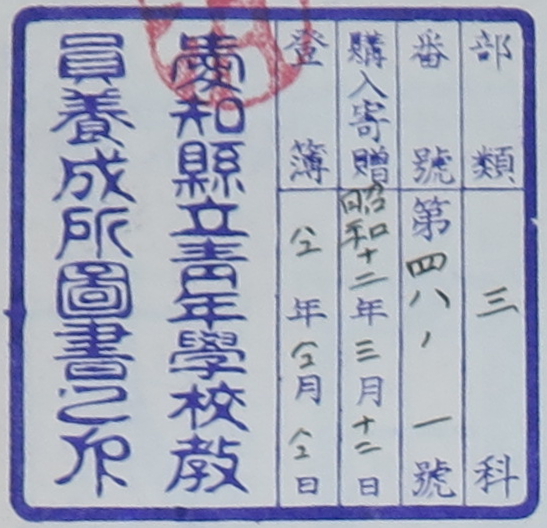 部類 三 科
番號 第四八ノ一號
購入寄贈 昭和十二年三月十二日
登簿 仝年仝月仝日
愛知縣立靑年學校敎
員養成所圖書之印